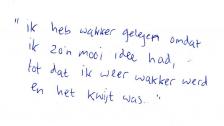 "ik heb wakker gelegen omdat
ik zo'n mooi idee had,
tot dat ik weer wakker werd
en het kwijt was.."